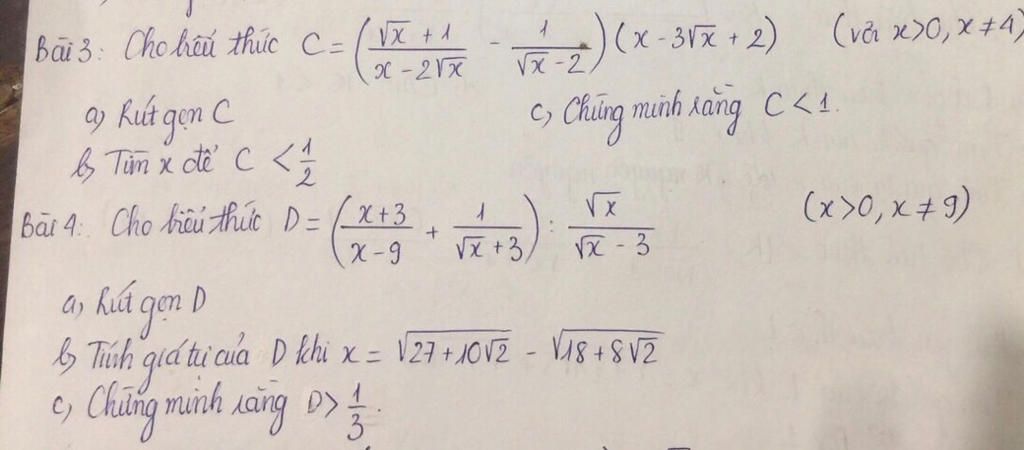 Bài 3: Cho biểu thức C = ( (√x + 1)/(x - 2√x) - 1/(√x - 2) ) (x - 3√x + 2) (với x>0, x ≠ 4)
a) Rút gọn C c) Chứng minh rằng C < 1.
b) Tìm x để C < 1/2
Bài 4: Cho biểu thức D = ( (x+3)/(x-9) + 1/(√x + 3) ) : √x/(√x - 3) (x>0, x ≠ 9)
a) Rút gọn D
b) Tính giá trị của D khi x = √(27 + 10√2) - √(18 + 8√2)
c) Chứng minh rằng D > 1/3.